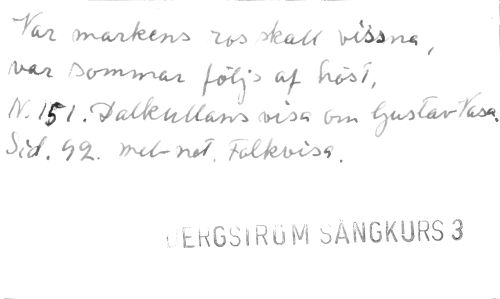 Var markens ros skall vissna,
var sommar följs af höst,
N. 151. Dalkullans visa om Gustav Vasa.
Sid. 92. mel-not. Folkvisa.
BERGSTRÖM SÅNGKURS 3